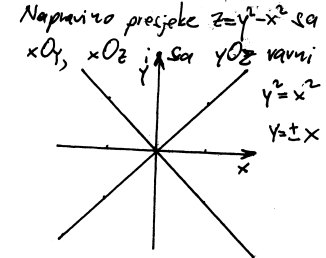 Napravimo presjeke z=y²-x² sa
xOy, xOz i sa yOz ravni
y
y²=x²
y=±x
x